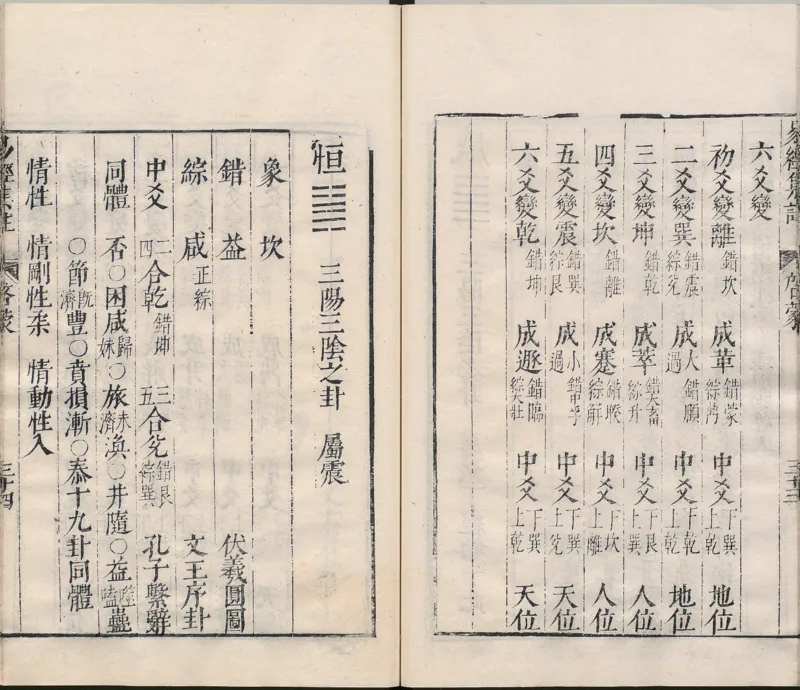 六爻變
初爻變離錯坎 成革錯蒙綜鼎 中爻下巽上乾 地位
二爻變巽錯震綜兌 成大過錯頤 中爻下乾上乾 地位
三爻變坤錯乾 成萃錯大畜綜升 中爻下艮上巽 人位
四爻變坎錯離 成蹇錯睽綜解 中爻下坎上離 人位
五爻變震錯巽綜艮 成小過錯中孚 中爻下巽上兌 天位
六爻變乾錯坤 成遯錯臨綜大壯 中爻下巽上乾 天位
恒 三陽三陰之卦 屬震
象 坎
錯 益 伏羲圓圖
綜 咸正綜 文王序卦
中爻 二四合乾錯坤 三五合兌錯艮綜巽 孔子繫辭
同體 否○困咸歸妹○旅未濟渙○井隨○益噬嗑蠱
○節既濟豐○賁損漸○泰十九卦同體
情性 情剛性柔 情動性入
易經集註
啓蒙
三十四